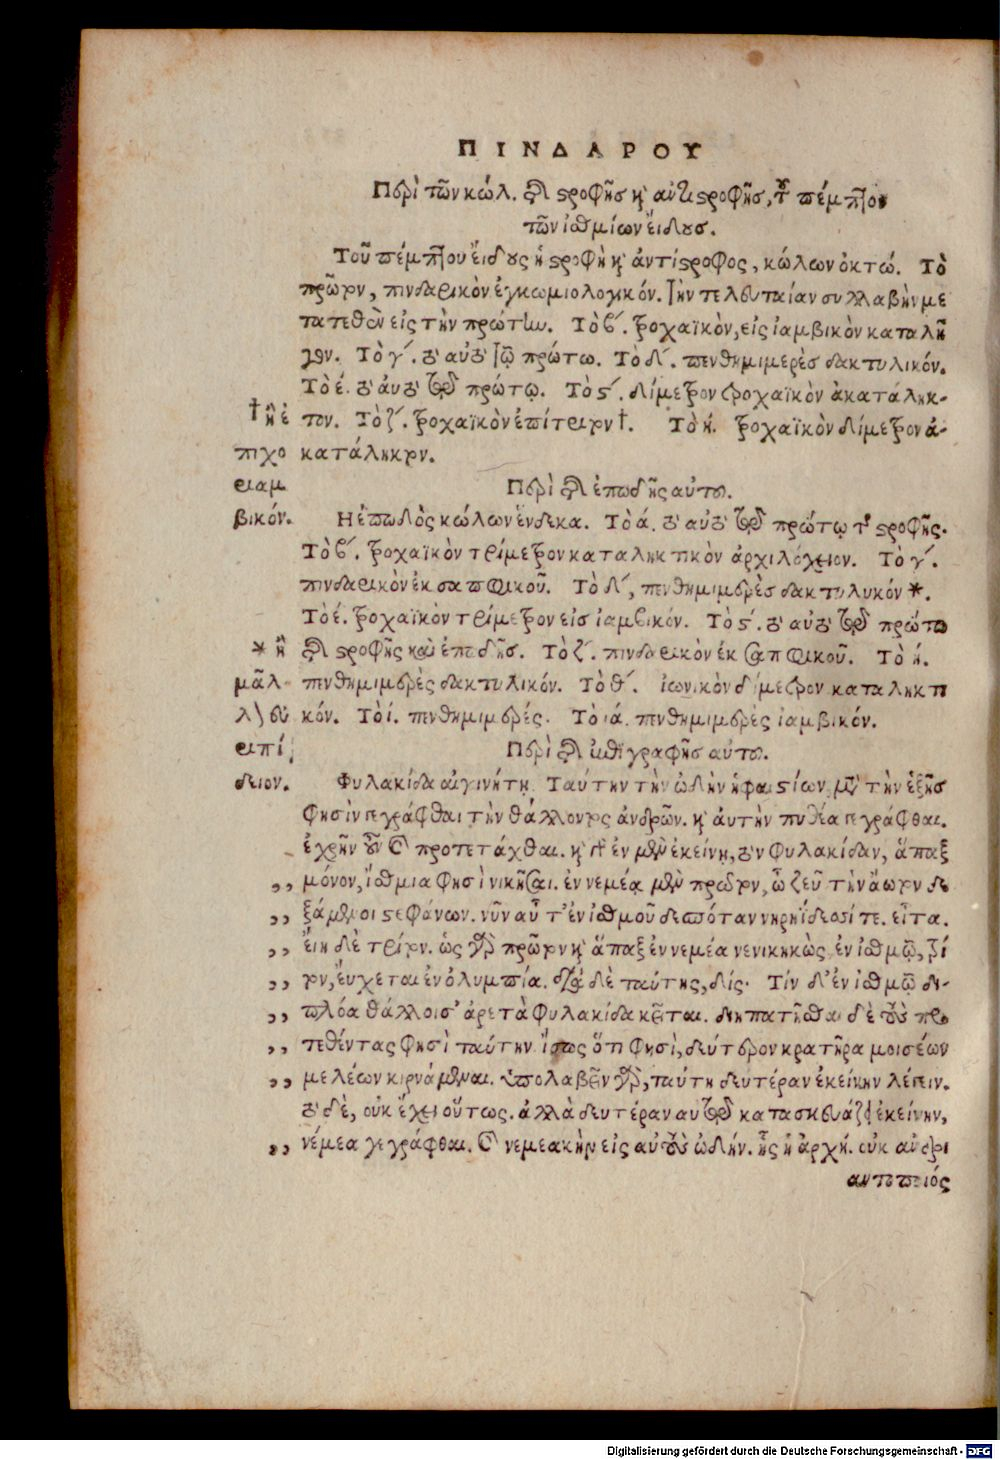 ΠΙΝΔΑΡΟΥ
Περὶ τῶν κώλ. τῆς στροφῆς καὶ ἀντιστροφῆς, τοῦ πέμπτου
τῶν ἰσθμίων εἴδους.
Τοῦ πέμπτου εἴδους ἡ στροφὴ καὶ ἀντίστροφος, κώλων ὀκτώ. Τὸ
πρῶτον, πινδαρικὸν ἐγκωμιολογικόν. τὴν τελευταίαν συλλαβὴν με
τατεθὲν εἰς τὴν πρώτην. Τὸ β΄. τροχαϊκὸν, εἰς ἰαμβικὸν καταλῆ
γον. Τὸ γ΄. τὸ αὐτὸ τῷ πρώτω. Τὸ δ΄. πενθημιμερὲς δακτυλικόν.
Τὸ έ. τὸ ἀυτὸ τῷ πρώτῳ. Τὸ ς΄. δίμετρον τροχαϊκὸν ἀκατάληκ-
τον. Τὸ ζ΄. τροχαϊκὸν ἐπίτριτον †. Τὸ ή. τροχαϊκὸν δίμετρον ἀ-
κατάληκτον.
† ἢ ἐ
πιχο
ριαμ
βικόν.
Περὶ τῆς ἐπωδῆς αὐτοῦ.
Η ἐπωδὸς κώλων ἕνδεκα. Τὸ ά. τὸ αὐτὸ τῷ πρώτῳ τῆς στροφῆς.
Τὸ β΄. τροχαϊκὸν τρίμετρον καταληκτικὸν ἀρχιλόχειον. Τὸ γ΄.
πινδαρικὸν ἐκ σαπφικοῦ. Τὸ δ΄, πενθημιμερὲς δακτυλυκόν *.
Τὸ έ. τροχαϊκὸν τρίμετρον εἰς ἰαμβικόν. Τὸ ς΄. τὸ αὐτὸ τῷ πρώτω
τῆς στροφῆς καὶ ἐπωδῆς. Τὸ ζ΄. πινδαρικὸν ἐκ σαπφικοῦ. Τὸ ή.
πενθημιμερὲς δακτυλικόν. Τὸ θ΄. ἰωνικὸν δίμετρον καταληκτι
κόν. Τὸ ί. πενθημιμερές. Τὸ ιά. πενθημιμερὲς ἰαμβικόν.
* ἢ
μᾶλ
λον εὐ
ριπί
δειον.
Περὶ τῆς ἐπιγραφῆς αὐτοῦ.
Φυλακίδα αἰγινήτῃ. Ταύτην τὴν ὠδὴν ἡφαιστίων μετὰ τὴν ἑξῆς
φησὶν γεγράφθαι τὴν θάλλοντος ἀνδρῶν. καὶ ἀυτὴν πυθέα γεγράφθαι.
ἐχρῆν οὖν καὶ προτετάχθαι. καὶ γὰρ ἐν μὲν ἐκείνῃ, τὸν Φυλακίδαν, ἅπαξ
,, μόνον, ἴσθμια φησὶ νικῆσαι. ἐν νεμέᾳ μὲν πρῶτον, ὦ ζεῦ τὴν ἄωτον δε
,, ξάμενοι στεφάνων. νῦν αὖ τ' ἐν ἰσθμοῦ δεσπόταν νηρηΐδεσσί τε. εἶτα.
,, ἔιη δὲ τρίτον. ὡς γὰρ πρῶτον καὶ ἅπαξ ἐν νεμέα νενικηκὼς ἐν ἰσθμῷ, τρί
,, τον, ἔυχεται ἐν ὀλυμπία. διὰ δὲ ταύτης, δίς. Τὶν δ' ἐν ἰσθμῷ δι-
,, πλόα θάλλοισ' ἀρετὰ Φυλακίδα κεῖται. διηπατῆσθαι δὲ τοὺς προ
,, τεθέντας φησὶ ταύτην ἴσως ὅτι φησὶ, δεύτερον κρατῆρα μοισέων
,, μελέων κιρνάμεναι. ὑπολαβεῖν γὰρ, ταύτῃ δευτέραν ἐκείνην λέγειν.
τὸ δὲ, οὐκ ἔχει οὕτως. ἀλλὰ δευτέραν αὐτῷ κατασκευάζει ἐκείνην,
,, νέμεα γεγράφθαι. καὶ νεμεακὴν εἰς αὐτοὺς ὠδήν. ἧς ἡ ἀρχή. οὐκ ἀνδρι
αντοποιός
Digitalisierung gefördert durch die Deutsche Forschungsgemeinschaft - DFG